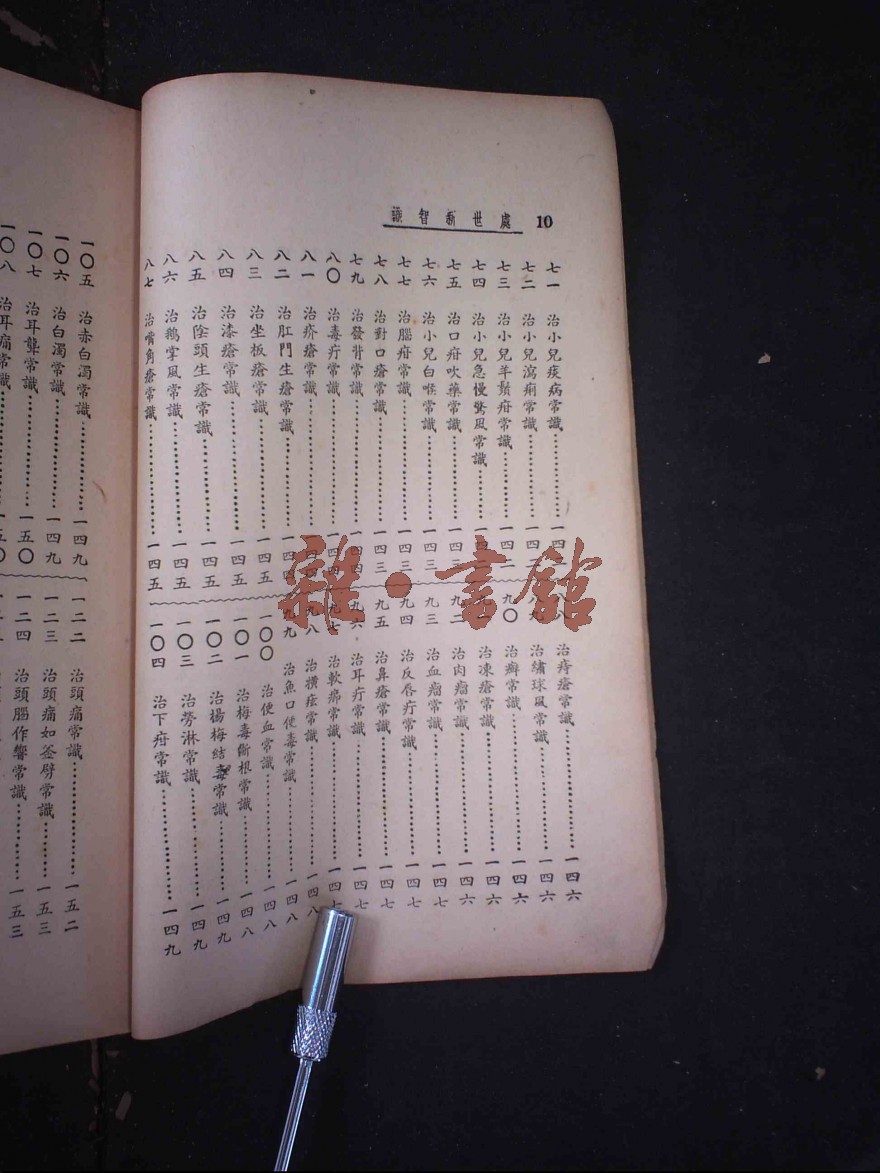 處世新智識 10
七一 治小兒痰病常識 一四二
七二 治小兒瀉痢常識 一四二
七三 治小兒羊鬚疳常識 一四二
七四 治小兒急慢驚風常識
七五 治口疳吹藥常識
七六 治小兒白喉常識 一四三
七七 治腦疳常識 一四三
七八 治對口瘡常識 一四三
七九 治發背常識 一四四
八〇 治毒疔常識 一四四
八一 治疥瘡常識 一四四
八二 治肛門生瘡常識 一四四
八三 治坐板瘡常識 一四五
八四 治漆瘡常識 一四五
八五 治陰頭生瘡常識 一四五
八六 治鵝掌風常識 一四五
八七 治嘴角瘡常識 一四五
治痔瘡常識 一四六
八九 治繡球風常識 一四六
九〇 治癬常識 一四六
治凍瘡常識 一四六
九二 治肉瘤常識 一四六
九三 治血瘤常識 一四七
九四 治反唇疔常識 一四七
九五 治鼻瘡常識 一四七
九六 治耳疔常識 一四七
九七 治軟癤常識 一四七
九八 治橫痃常識 一四八
九九 治魚口便毒常識 一四八
一〇〇 治便血常識 一四八
一〇一 治梅毒斷根常識 一四八
一〇二 治楊梅結毒常識 一四九
一〇三 治勞淋常識 一四九
一〇四 治下疳常識 一四九
一〇五 治赤白濁常識 一四九
一〇六 治白濁常識 一四九
一〇七 治耳聾常識 一五〇
一〇八 治耳痛常識 一五〇
一二二 治頭痛常識 一五二
一二三 治頭痛如釜劈常識 一五三
一二四 治頭腦作響常識 一五三
雜·書館